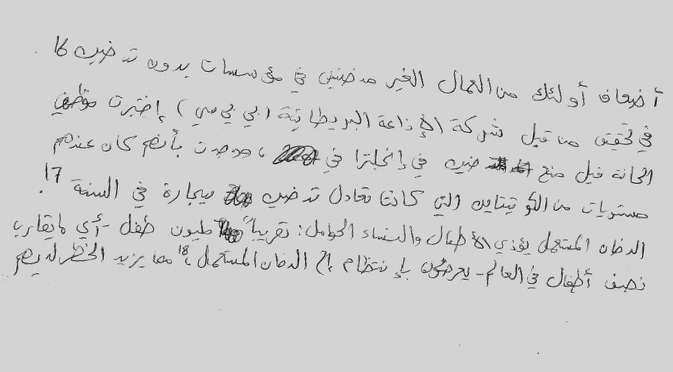 أضعاف أولئك من العمال الغير مدخنين في مؤسسات بدون تدخين كا
في تحقيق من قبل شركة الإذاعة البريطانية (بي بي سي) إختبرت موظفي
الحانة قبل منع تدخين في إنجلترا في ، ووجدت بأنهم كان عندهم
مستويات من الكوتينين التي كانت تعادل تدخين سيجارة في السنة 17!
الدخان المستعمل يؤذي الأطفال والنساء الحوامل: تقريباً مليون طفل - أي ما يقارب
نصف أطفال في العالم - يعرضون بإنتظام إلى الدخان المستعمل، 18 مما يزيد الخطر لديهم